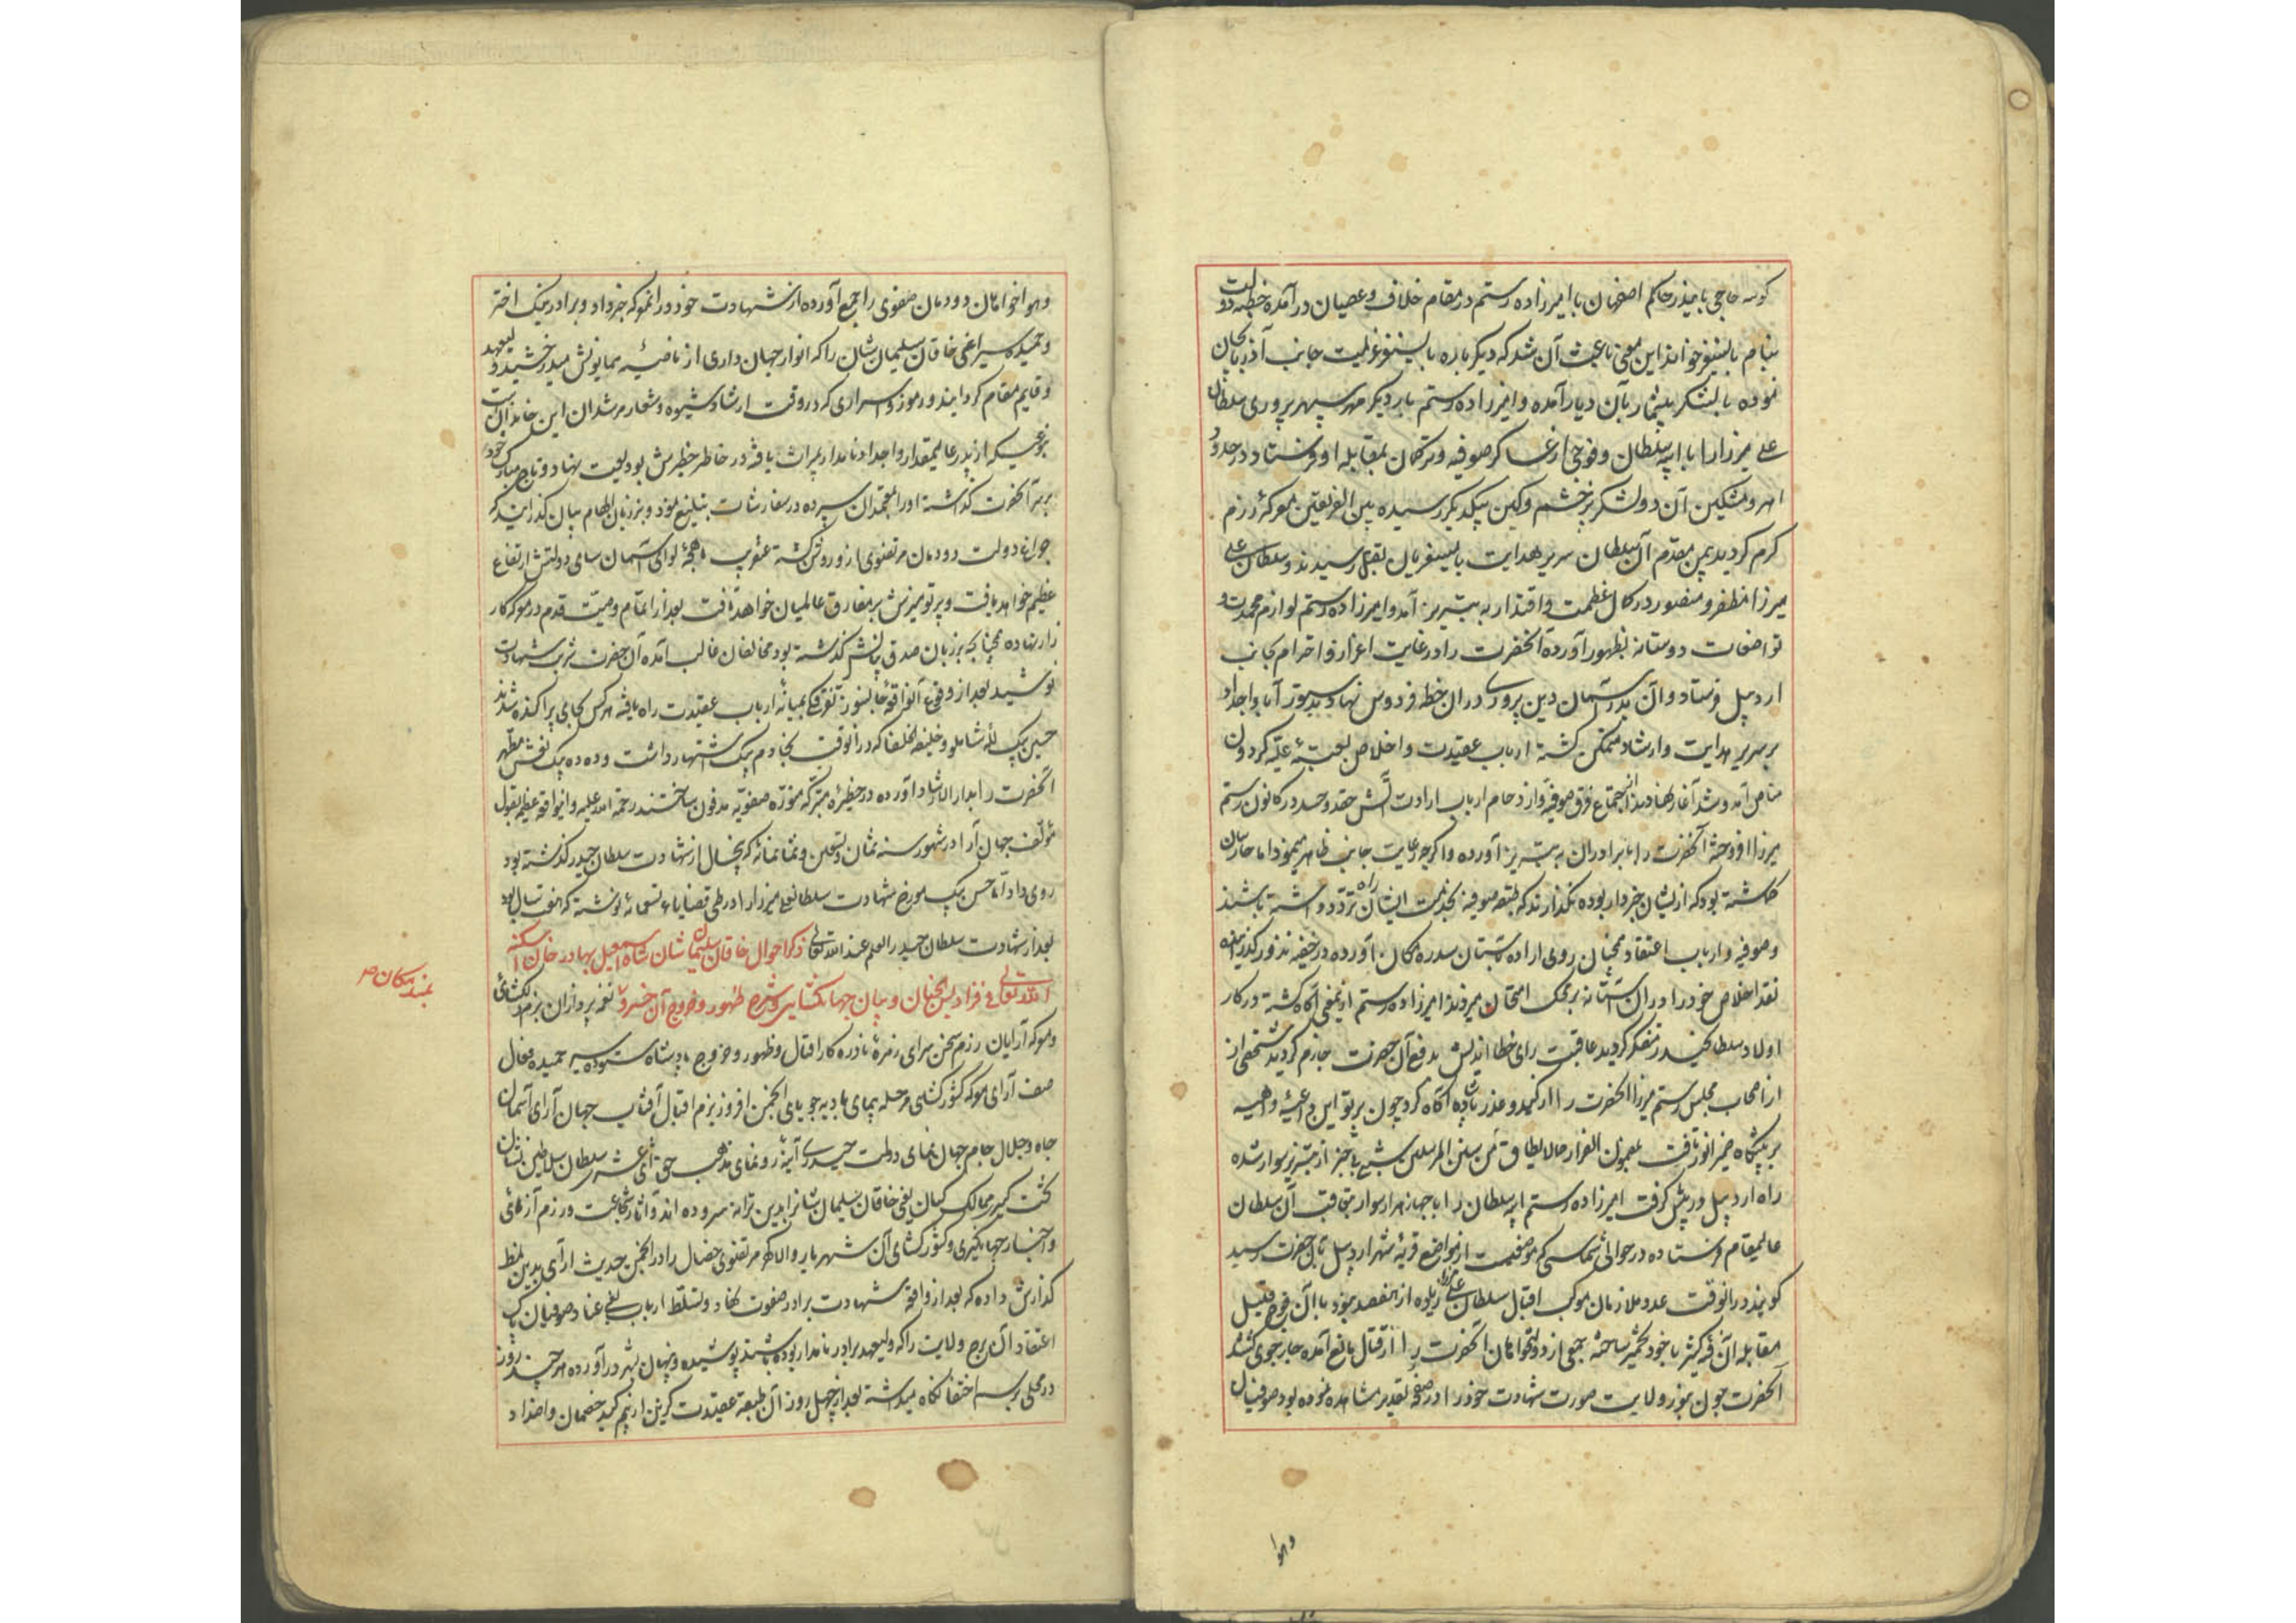 کوسه حاجی بایندر حاکم اصفهان با امیرزاده رستم در مقام خلاف و عصیان درآمده خطبه دولت
بنام بایسنغر خواند این معنی باعث آن شد که دیگرباره بایسنغر عزیمت جانب آذربایجان
نموده با لشکر بیشمار بآن دیار آمده و امیرزاده رستم بار دیگر مهر سپهر پروری سلطان
علی میرزا را با ایبه سلطان و فوجی از عساکر صوفیه و ترکمان بمقابله او فرستاد در حدود
اهر و مشکین آن دو لشکر پرخشم و کین بیکدیگر رسیده بین الفریقین معرکه رزم
گرم گردید بیمن مقدم آن سلطان سریر هدایت بایسنغریان بقتل رسیدند و سلطان علی
میرزا مظفر و منصور در کمال عظمت و اقتدار به تبریز آمد و امیرزاده رستم لوازم محمدت و
تواضعات دوستانه بظهور آورده آنحضرت را در غایت اعزاز و احترام بجانب
اردبیل فرستاد و آن بدر آسمان دین پروری در آن خطه فردوس نهاد بدستور آبا و اجداد
بر سریر هدایت و ارشاد متمکن گشته ارباب عقیدت و اخلاص بعتبه علیه گردون
مناص آمد و شد آغاز نهادند از اجتماع فرق صوفیه و ازدحام ارباب ارادت آتش حقد و حسد در کانون رستم
میرزا افروخته آنحضرت را با برادران به تبریز آورده و اگرچه رعایت جانب ظاهر مینمود اما حارسان
گماشته بود که از ایشان خبردار بوده نگذارند که طبقه صوفیه بخدمت ایشان راه تردد داشته باشند
و صوفیه و ارباب اعتقاد همچنان روی اراده بآستان سدره مکان آورده در خفیه نذور گذرانیده
نقد اخلاص خود را در آن آستانه بر محک امتحان میزدند امیرزاده رستم از نمعنی آگاه گشته در کار
اولاد سلطان حیدر متفکر گردید عاقبت رای خطا اندیش بدفع آن حضرت جازم گردید شخصی از
از اصحاب مجلس رستم میرزا آنحضرت را از کید و غدر بادشاه آگاه کرد چون پرتو این داعیه واهیه
بر پیشگاه ضمیر انور تافت بمضمون الفرار مما لایطاق من سنن المرسلین شبی بیخبر از تبریز سوار شده
راه اردبیل در پیش گرفت امیرزاده رستم ایبه سلطان را با چهار هزار سوار بتعاقب آن سلطان
عالیمقام فرستاده در حوالی شماسی که موضعیست از مواضع قریه شهر اردبیل بآن حضرت رسید
گویند در آنوقت عدد ملازمان موکب اقبال سلطان علی میرزا زیاده از هفتصد نبود با آن فوج قلیل
مقابله آن فئه کثیر با خود مخمر ساخته جمعی از دولتخواهان آنحضرت را از قتال مانع آمده چاره جوی گشتند
آنحضرت چون بنور ولایت صورت شهادت خود را در صفحه تقدیر مشاهده نموده بود صوفیان
وهوا
وهواخواهان دودمان صفوی را جمع آورده از شهادت خود در آن معرکه خبر داد و برادر نیک اختر
وحمیده سیر اعنی خاقان سلیمان شان را که انوار جهانداری از ناصیه همایونش میدرخشید ولیعهد
وقایم مقام گردانیده و رموز و اسراری که در وقت ارشاد شیوه و شعار مرشدان این خاندانست
بنوعیکه از پدر عالیمقدار و اجداد نامدار بمیراث یافته در خاطر خطیرش بودیعت نهاد و تاج مبارک خود
بر سر آنحضرت گذاشته او را بمعتمدان سپرده در سفارشات تبلیغ نمود و بر زبان الهام بیان گذرانید که
چراغ دولت دودمان مرتضوی ازو روشن گشته عنقریب ماهچه لوای آسمان سای دولتش ارتفاع
عظیم خواهد یافت و پرتو تمیزش بر مفارق عالمیان خواهد تافت بعد از اتمام وصیت قدم در معرکه کار
زار نهاده همچنانچه بر زبان صدق بیانش گذشته بود مخالفان غالب آمده آن حضرت شربت شهادت
نوشید بعد از وقوع آنواقعه جانسوز تفرقه بمیانه ارباب عقیدت راه یافته هر کس بجایی پراکنده شدند
حسین بیک لله شاملو و خلیفة الخلفا که در آنوقت بخادم بیک اشتهار داشت و دده بیک نعش مطهر
آنحضرت را بدار الارشاد آورده در حظیره متبرکه منوره صفویه مدفون ساختند رحمة الله علیه و اینواقعه عظیم بقول
مؤلف جهان آرا در شهور سنه ثمان و تسعین و ثمانمائه که پنجسال از شهادت سلطان حیدر گذشته بود
روی داد اما حسن بیک مورخ شهادت سلطانعلی میرزا را در طی قضایاء تسعمائه نوشته که هفت سال بود
بعد از شهادت سلطان حیدر العلم عند الله تعالی ذکر احوال خاقان سلیمان شان شاه اسمعیل بهادر خان اسکنه
الله تعالی فی فرادیس الجنان و بیان جهانگشایی و شرح ظهور و خروج آن خسرو نغمه پردازان بزم دلگشائی
بلند مکان
ومعرکه آرایان رزم سخن سرای زمره نادره کار اقبال و ظهور و خروج بادشاه ستوده سیر حمیده فعال
صف آرای معرکه کشورگشایی مرحله پیمای بادیه جویای انجمن افروز بزم اقبال آفتاب جهان آرای آسمان
جاه و جلال جام جهان نمای دولت حیدری آینه رونمای مذهب حق اثنی عشری سلطان سلاطین نشان
کشت گیر ممالک کیان یعنی خاقان سلیمان شانرا بدین ترانه سروده اند و آثار شجاعت و رزم آزمائی
واخبار جهانگیری و کشورگشای آن شهریار والا گهر مرتضوی خصال را در انجمن حدیث آرایی بدین نمط
گذارش داده که بعد از واقعه شهادت برادر صفوت نهاد و تسلط ارباب بغی و عناد صوفیان پاک
اعتقاد آن برج ولایت را که ولیعهد برادر نامدار بوده باشند پوشیده و پنهان بشهر در آورده هر چند روز
در محلی برسم اختفا نگاه میداشتند بعد از چهل روز آن طبقه عقیدت گزین از بیم کید خصمان و اضداد